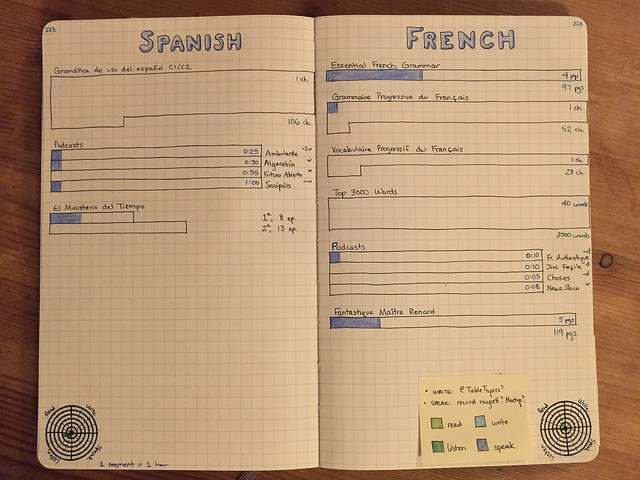 223
SPANISH
Gramática de uso del español C1/C2
1 ch.
106 ch.
Podcasts
0:25 Ambulante -2w
0:30 Algarabía w
0:55 Futuro Abierto w
1:00 Serópolis -w
El Ministerio del Tiempo
1ª, 8 ep.
2ª, 13 ep.
Read
Write
Speak
Listen
1 segment = 1 hour
224
FRENCH
Essential French Grammar
4 pgs
97 pgs
Grammaire Progressive du Français
1 ch
52 ch.
Vocabulaire Progressif du Français
1 ch.
28 ch.
Top 3000 Words
40 words
3000 words
Podcasts
0:10 Fr. Authentique -d
0:10 Jrnl Façile d
0:05 Choses -d
0:08 News Slow w
Fantastique Maître Renard
5 pgs
119 pgs.
• WRITE: @TableTopics?
• SPEAK: record myself? Meetup?
read write
listen speak
Read
Write
Speak
Listen